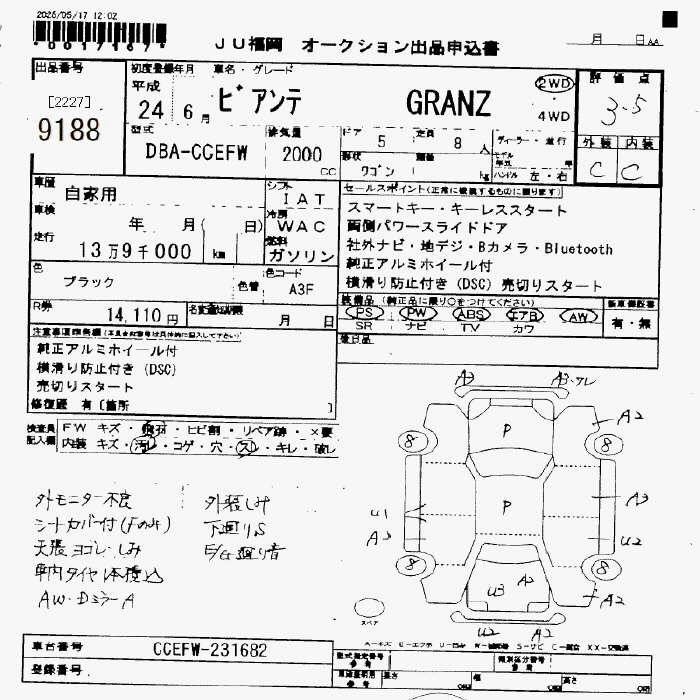 2026/05/17 12:02
*0017167*
JU福岡 オークション出品申込書
月 日 AA
出品番号
[2227]
9188
初度登録年月
平成
24 6月
車名・グレード
ビアンテ GRANZ
2WD
4WD
評価点
3.5
外装 内装
C C
型式
DBA-CCEFW
排気量
2000
cc
ドア 5
定員 8 人
形状
ワゴン
kg
ディーラー・並行
モデル年式 年
ハンドル 左・右
車歴
自家用
車検
年 月( 日)
走行
13万9千000 km
シフト
IAT
冷房
WAC
燃料
ガソリン
セールスポイント(正常に機能するものに限ります)
スマートキー・キーレススタート
両側パワースライドドア
社外ナビ・地デジ・Bカメラ・Bluetooth
純正アルミホイール付
横滑り防止付き(DSC) 売切りスタート
色
ブラック
色替
色コード
A3F
R券
14,110円
名変期限
月 日
装備品(純正品に限り○をつけてください)
PS PW ABS エアB AW
SR ナビ TV カワ
新車保証書
有・無
注意事項
純正アルミホイール付
横滑り防止付き(DSC)
売切りスタート
修復歴 有〔箇所 〕
検査員記入欄
FW キズ・飛石・ヒビ割・リペア跡・×要
内装 キズ・汚れ・コゲ・穴・スレ・キレ・破レ
外モニター不良
シートカバー付(Fのみ)
天張ヨゴレ・しみ
車内タイヤ1本積込
AW・Dミラー A
外装しみ
下廻りS
E/G廻り音
A3 A3・ワレ
A2
8 8
P
P
A3
U1
A3
U2
8 8
A2
U3 A2
U2 A2
スペア
車台番号
CCEFW-231682
登録番号
型式指定番号
類別区分番号
長さ
幅
高さ